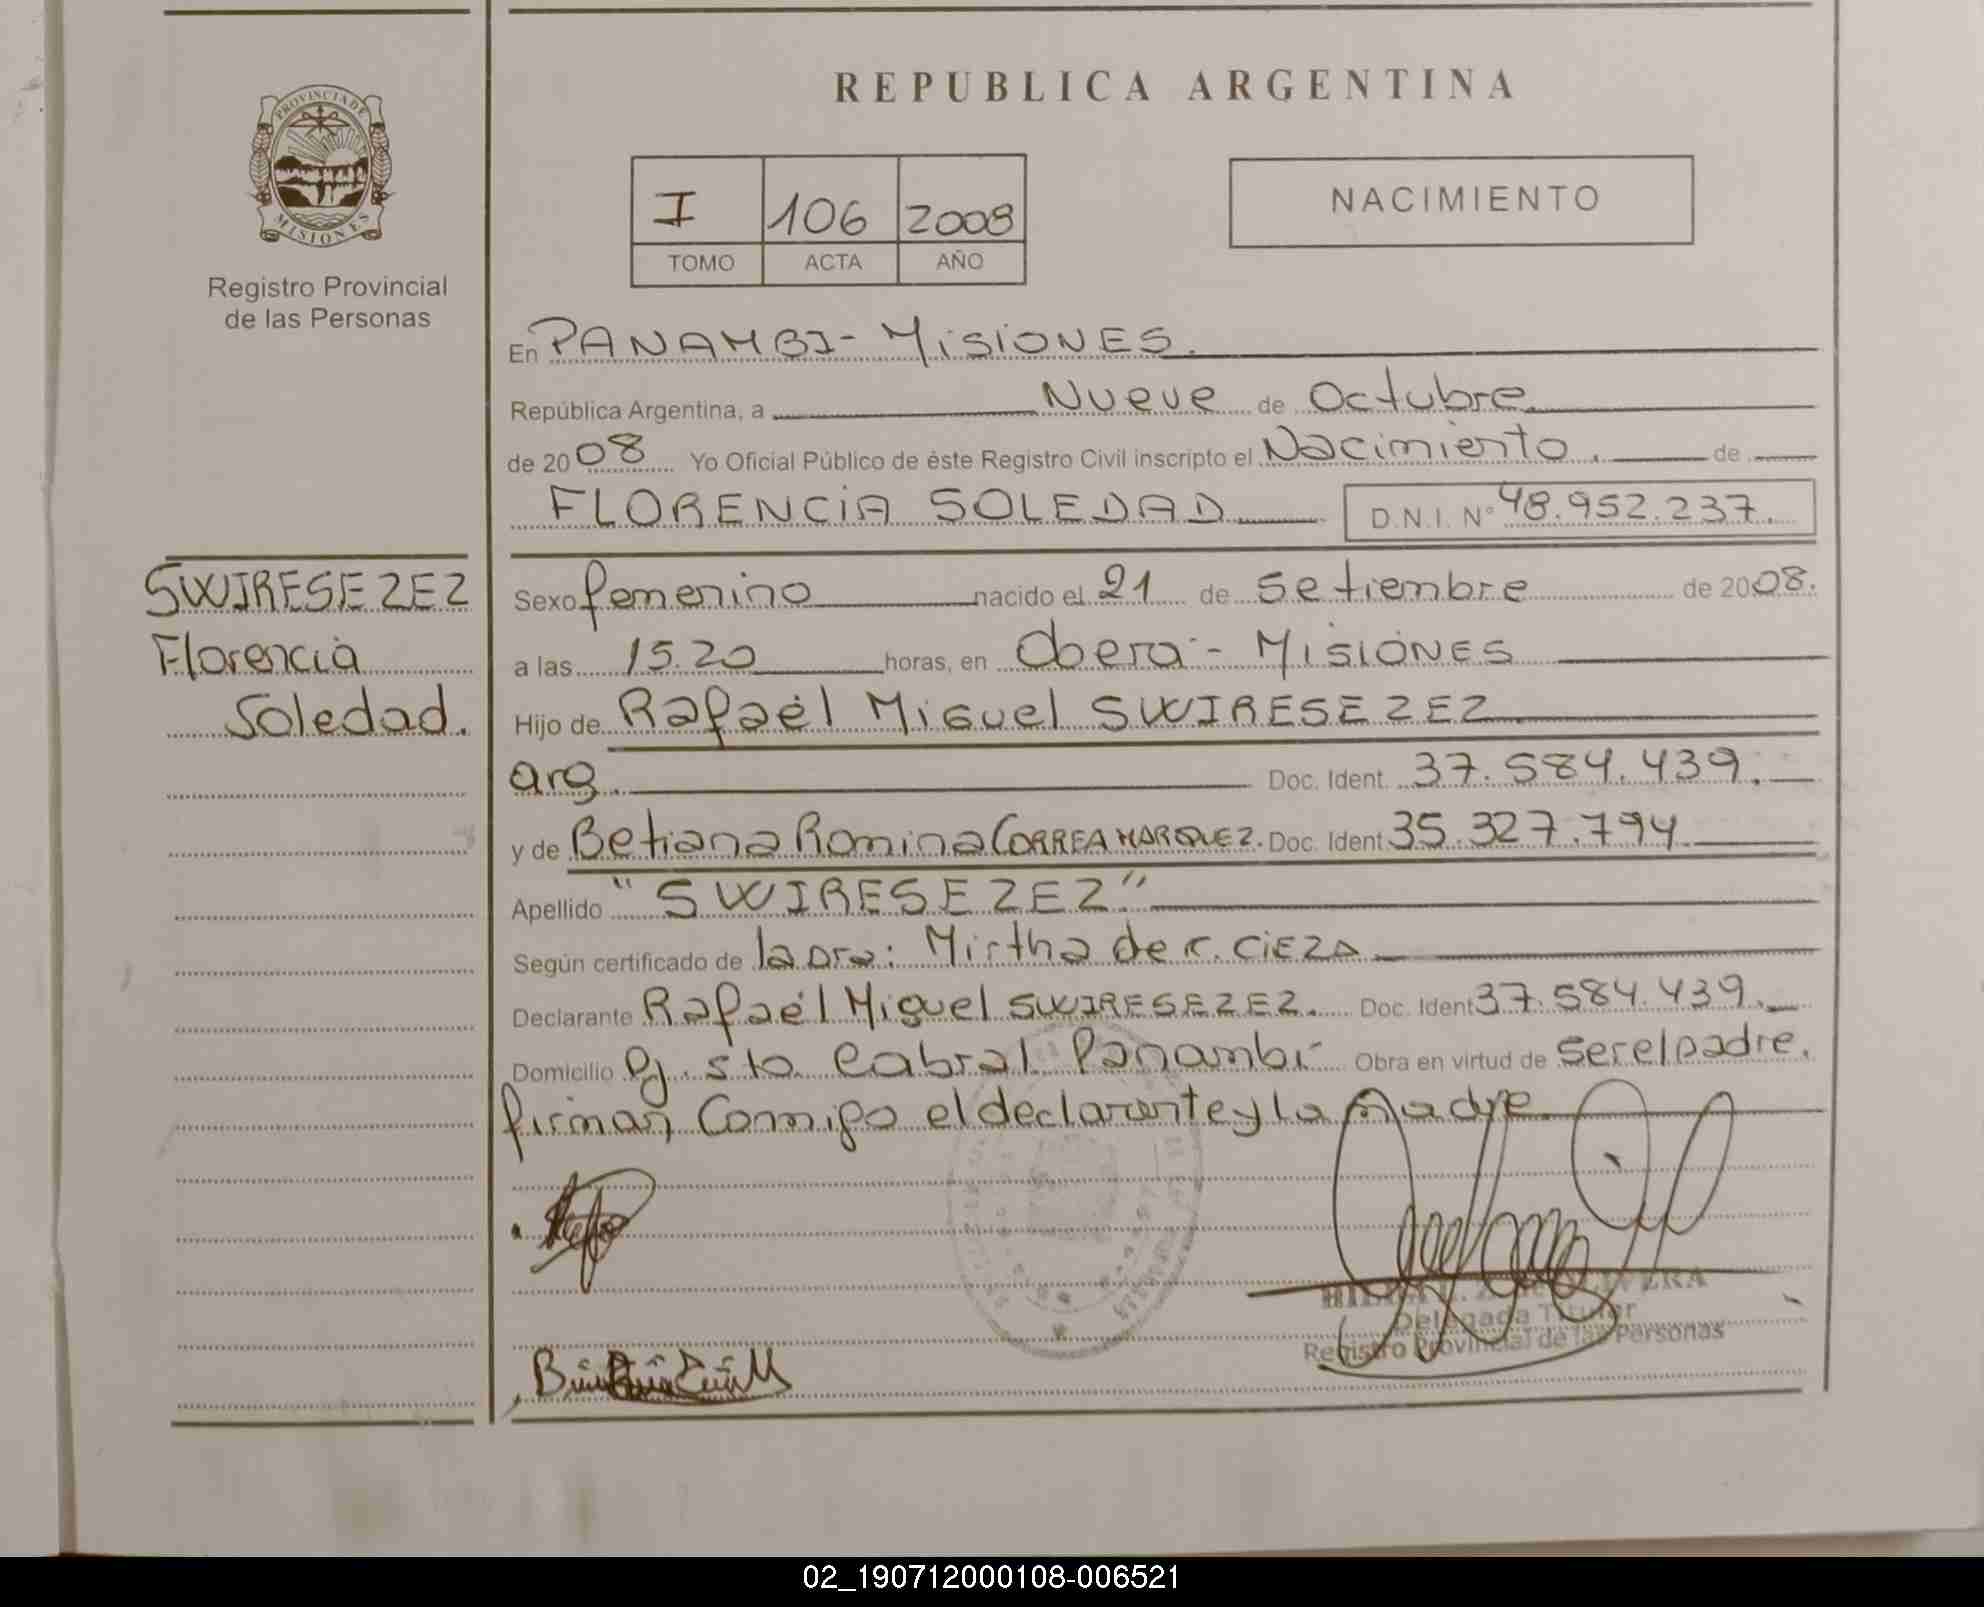 REPUBLICA ARGENTINA
PROVINCIA DE
MISIONES
Registro Provincial
de las Personas
I 106 2008
TOMO ACTA AÑO
NACIMIENTO
En PANAMBI - MISIONES.
República Argentina, a Nueve de Octubre
de 2008 Yo Oficial Público de éste Registro Civil inscripto el Nacimiento. de
FLORENCIA SOLEDAD D.N.I. Nº 48.952.237.
SWIRESEZEZ
Florencia
Soledad.
Sexo femenino nacido el 21 de Setiembre de 2008.
a las 15.20 horas, en Oberá - MISIONES
Hijo de Rafael Miguel SWIRESEZEZ
arg. Doc. Ident. 37.584.439.
y de Betiana Romina CORREA MARQUEZ. Doc. Ident. 35.327.794
Apellido "SWIRESEZEZ"
Según certificado de la Dra: Mirtha de C. CIEZA
Declarante Rafael Miguel SWIRESEZEZ. Doc. Ident. 37.584.439.
Domicilio Pj. Sto. Cabral Panambí Obra en virtud de ser el padre.
firman Conmigo el declarante y la Madre
OLIVERA
Delegada Titular
Registro Provincial de las Personas
02_190712000108-006521